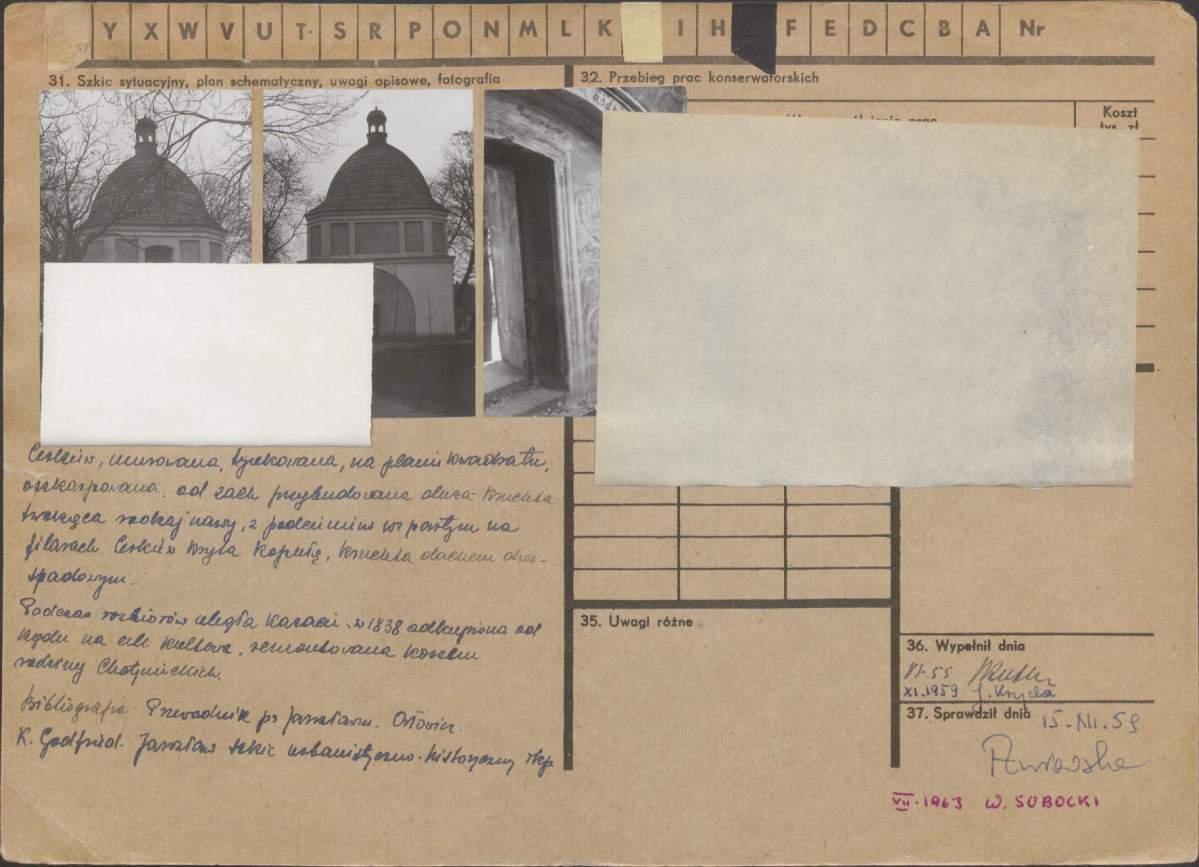 Y X W V U T S R P O N M L K I H F E D C B A Nr
31. Szkic sytuacyjny, plan schematyczny, uwagi opisowe, fotografia
32. Przebieg prac konserwatorskich
Koszt
tys. zł
Cerkiew, murowana, tynkowana, na planie kwadratu,
oszkarpowana. od zach przybudowana duża kruchta
tworząca rodzaj nawy, z podcieniem wspartym na
filarach. Cerkiew kryta kopułą, kruchta dachem dwu-
spadowym.
Podczas rozbiorów uległa kasacie. w 1838 odkupiona od
rządu na cele kultowe, remontowana kosztem
rodziny
Bibliografia: Przewodnik po Jarosławiu. Orłowicz.
K. Gottfried. Jarosław szkic urbanistyczno-historyczny rkp.
35. Uwagi różne
36. Wypełnił dnia
VI-55
XI.1959 J. Krycła
37. Sprawdził dnia 15-XII.59
VII-1963 W. SOBOCKI